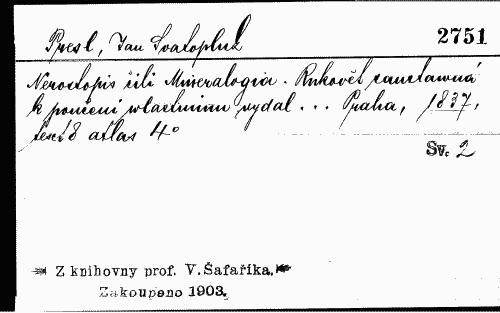 Presl, Jan Svatopluk 2751
Nerostopis čili Mineralogia. Rukověť saustawná
k poučení wlastnímu vydal ... Praha, 1837,
text 8 atlas 4°
Sv. 2
Z knihovny prof. V. Šafaříka.
Zakoupeno 1903.